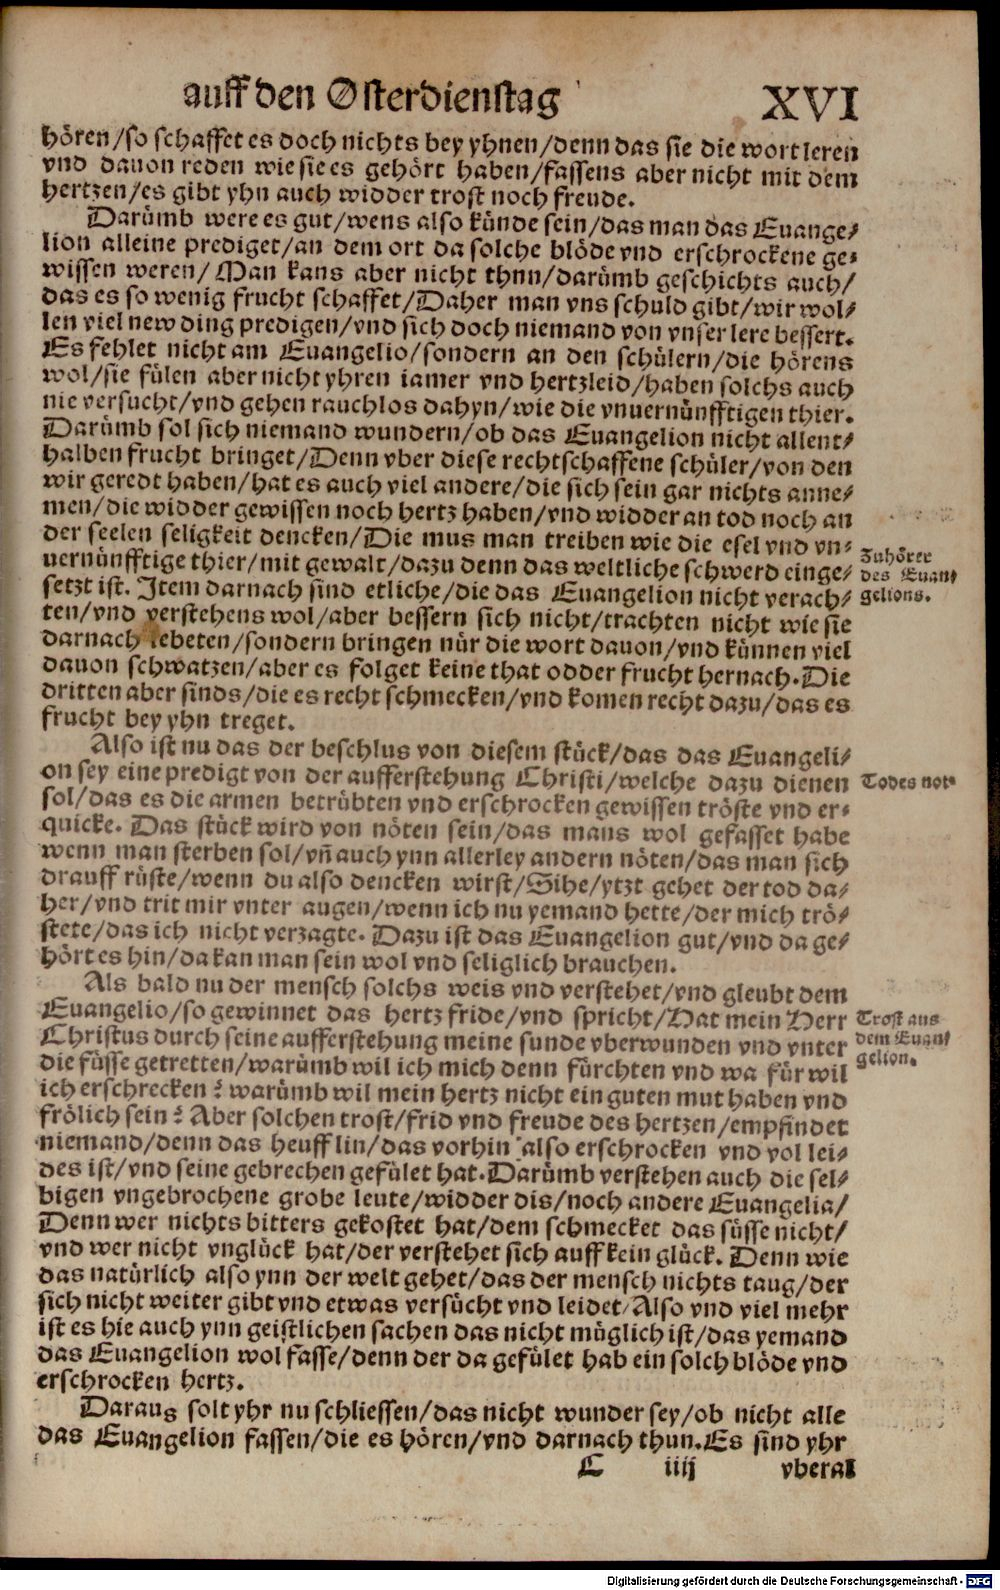 auff den Osterdienstag XVI
hören/so schaffet es doch nichts bey yhnen/denn das sie die wort leren
vnd dauon reden wie sie es gehört haben/fassens aber nicht mit dem
hertzen/es gibt yhn auch widder trost noch freude.
Darümb were es gut/wens also künde sein/das man das Euange⸗
lion alleine prediget/an dem ort da solche blöde vnd erschrockene ge⸗
wissen weren/Man kans aber nicht thun/darümb geschichts auch/
das es so wenig frucht schaffet/Daher man vns schuld gibt/wir wol⸗
len viel new ding predigen/vnd sich doch niemand von vnser lere bessert.
Es fehlet nicht am Euangelio/sondern an den schülern/die hörens
wol/sie fülen aber nicht yhren iamer vnd hertzleid/haben solchs auch
nie versucht/vnd gehen rauchlos dahyn/wie die vnuernünfftigen thier.
Darümb sol sich niemand wundern/ob das Euangelion nicht allent⸗
halben frucht bringet/Denn vber diese rechtschaffene schüler/von den
wir geredt haben/hat es auch viel andere/die sich sein gar nichts anne⸗
men/die widder gewissen noch hertz haben/vnd widder an tod noch an
der seelen seligkeit dencken/Die mus man treiben wie die esel vnd vn⸗
uernünfftige thier/mit gewalt/dazu denn das weltliche schwerd einge⸗
setzt ist. Item darnach sind etliche/die das Euangelion nicht verach⸗
ten/vnd verstehens wol/aber bessern sich nicht/trachten nicht wie sie
darnach lebeten/sondern bringen nür die wort dauon/vnd künnen viel
dauon schwatzen/aber es folget keine that odder frucht hernach. Die
dritten aber sinds/die es recht schmecken/vnd komen recht dazu/das es
frucht bey yhn treget.
Zuhörer
des Euan⸗
gelions.
Also ist nu das der beschlus von diesem stück/das das Euangeli⸗
on sey eine predigt von der aufferstehung Christi/welche dazu dienen
sol/das es die armen betrübten vnd erschrocken gewissen tröste vnd er⸗
quicke. Das stück wird von nöten sein/das mans wol gefasset habe
wenn man sterben sol/vñ auch ynn allerley andern nöten/das man sich
drauff rüste/wenn du also dencken wirst/Sihe/ytzt gehet der tod da⸗
her/vnd trit mir vnter augen/wenn ich nu yemand hette/der mich trö⸗
stete/das ich nicht verzagte. Dazu ist das Euangelion gut/vnd da ge⸗
hört es hin/da kan man sein wol vnd seliglich brauchen.
Todes not
Als bald nu der mensch solchs weis vnd verstehet/vnd gleubt dem
Euangelio/so gewinnet das hertz fride/vnd spricht/Hat mein Herr
Christus durch seine aufferstehung meine sunde vberwunden vnd vnter
die füsse getretten/warümb wil ich mich denn fürchten vnd wa für wil
ich erschrecken? warümb wil mein hertz nicht ein guten mut haben vnd
frölich sein? Aber solchen trost/frid vnd freude des hertzen/empfindet
niemand/denn das heufflin/das vorhin also erschrocken vnd vol lei⸗
des ist/vnd seine gebrechen gefület hat. Darümb verstehen auch die sel⸗
bigen vngebrochene grobe leute/widder dis/noch andere Euangelia/
Denn wer nichts bitters gekostet hat/dem schmecket das süsse nicht/
vnd wer nicht vnglück hat/der verstehet sich auff kein glück. Denn wie
das natürlich also ynn der welt gehet/das der mensch nichts taug/der
sich nicht weiter gibt vnd etwas versücht vnd leidet/Also vnd viel mehr
ist es hie auch ynn geistlichen sachen das nicht müglich ist/das yemand
das Euangelion wol fasse/denn der da gefület hab ein solch blöde vnd
erschrocken hertz.
Trost aus
dem Euan⸗
gelion.
Daraus solt yhr nu schliessen/das nicht wunder sey/ob nicht alle
das Euangelion fassen/die es hören/vnd darnach thun. Es sind yhr
C iiij vberal
Digitalisierung gefördert durch die Deutsche Forschungsgemeinschaft - DFG